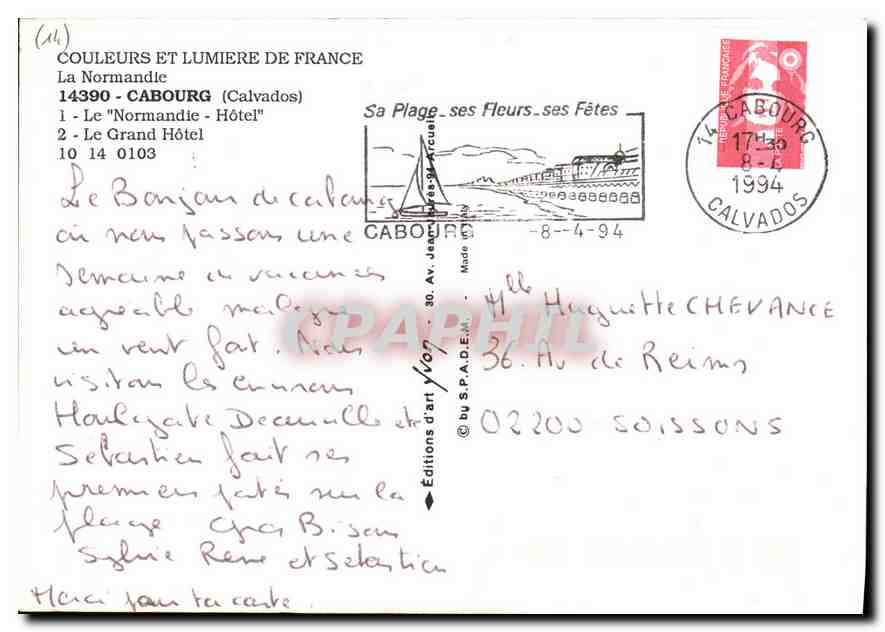 (14)
COULEURS ET LUMIERE DE FRANCE
La Normandie
14390 - CABOURG (Calvados)
1 - Le "Normandie - Hôtel"
2 - Le Grand Hôtel
10 14 0103
Sa Plage_ses Fleurs_ses Fêtes
CABOURG -8--4-94
REPUBLIQUE FRANÇAISE
LA POSTE
14 CABOURG
17H30
8-4
1994
CALVADOS
Le Bonjour de Cabourg
où nous passons une
semaine de vacances
agréable malgré
un vent fort. Nous
visitons les environs
Houlgate Deauville etc
Sébastien fait ses
premiers patés sur la
plage Gros Bisous
Sylvie René et Sébastien
Merci pour ta carte.
◆ Éditions d'art Yvon - 30. Av. Jean-Jaurès-94-Arcueil
© by S.P.A.D.E.M. - Made in Italy
CPAPHIL
Mlle Huguette CHEVANCE
36. Av de Reims
02200 SOISSONS